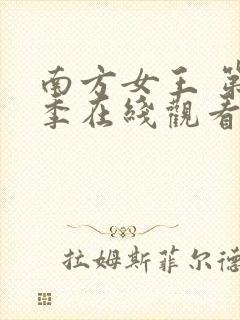 南方女王 第
季在綫觀看
拉姆斯菲尔德